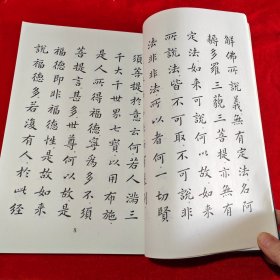 解佛所說義無有定法名阿
耨多羅三藐三菩提亦無有
定法如來可說何以故如來
所說法皆不可取不可說非
法非非法所以者何一切賢
須菩提於意云何若人滿三
千大千世界七寶以用布施
是人所得福德寧為多不須
菩提言甚多世尊何以故是
福德即非福德性是故如來
說福德多若復有人於此經